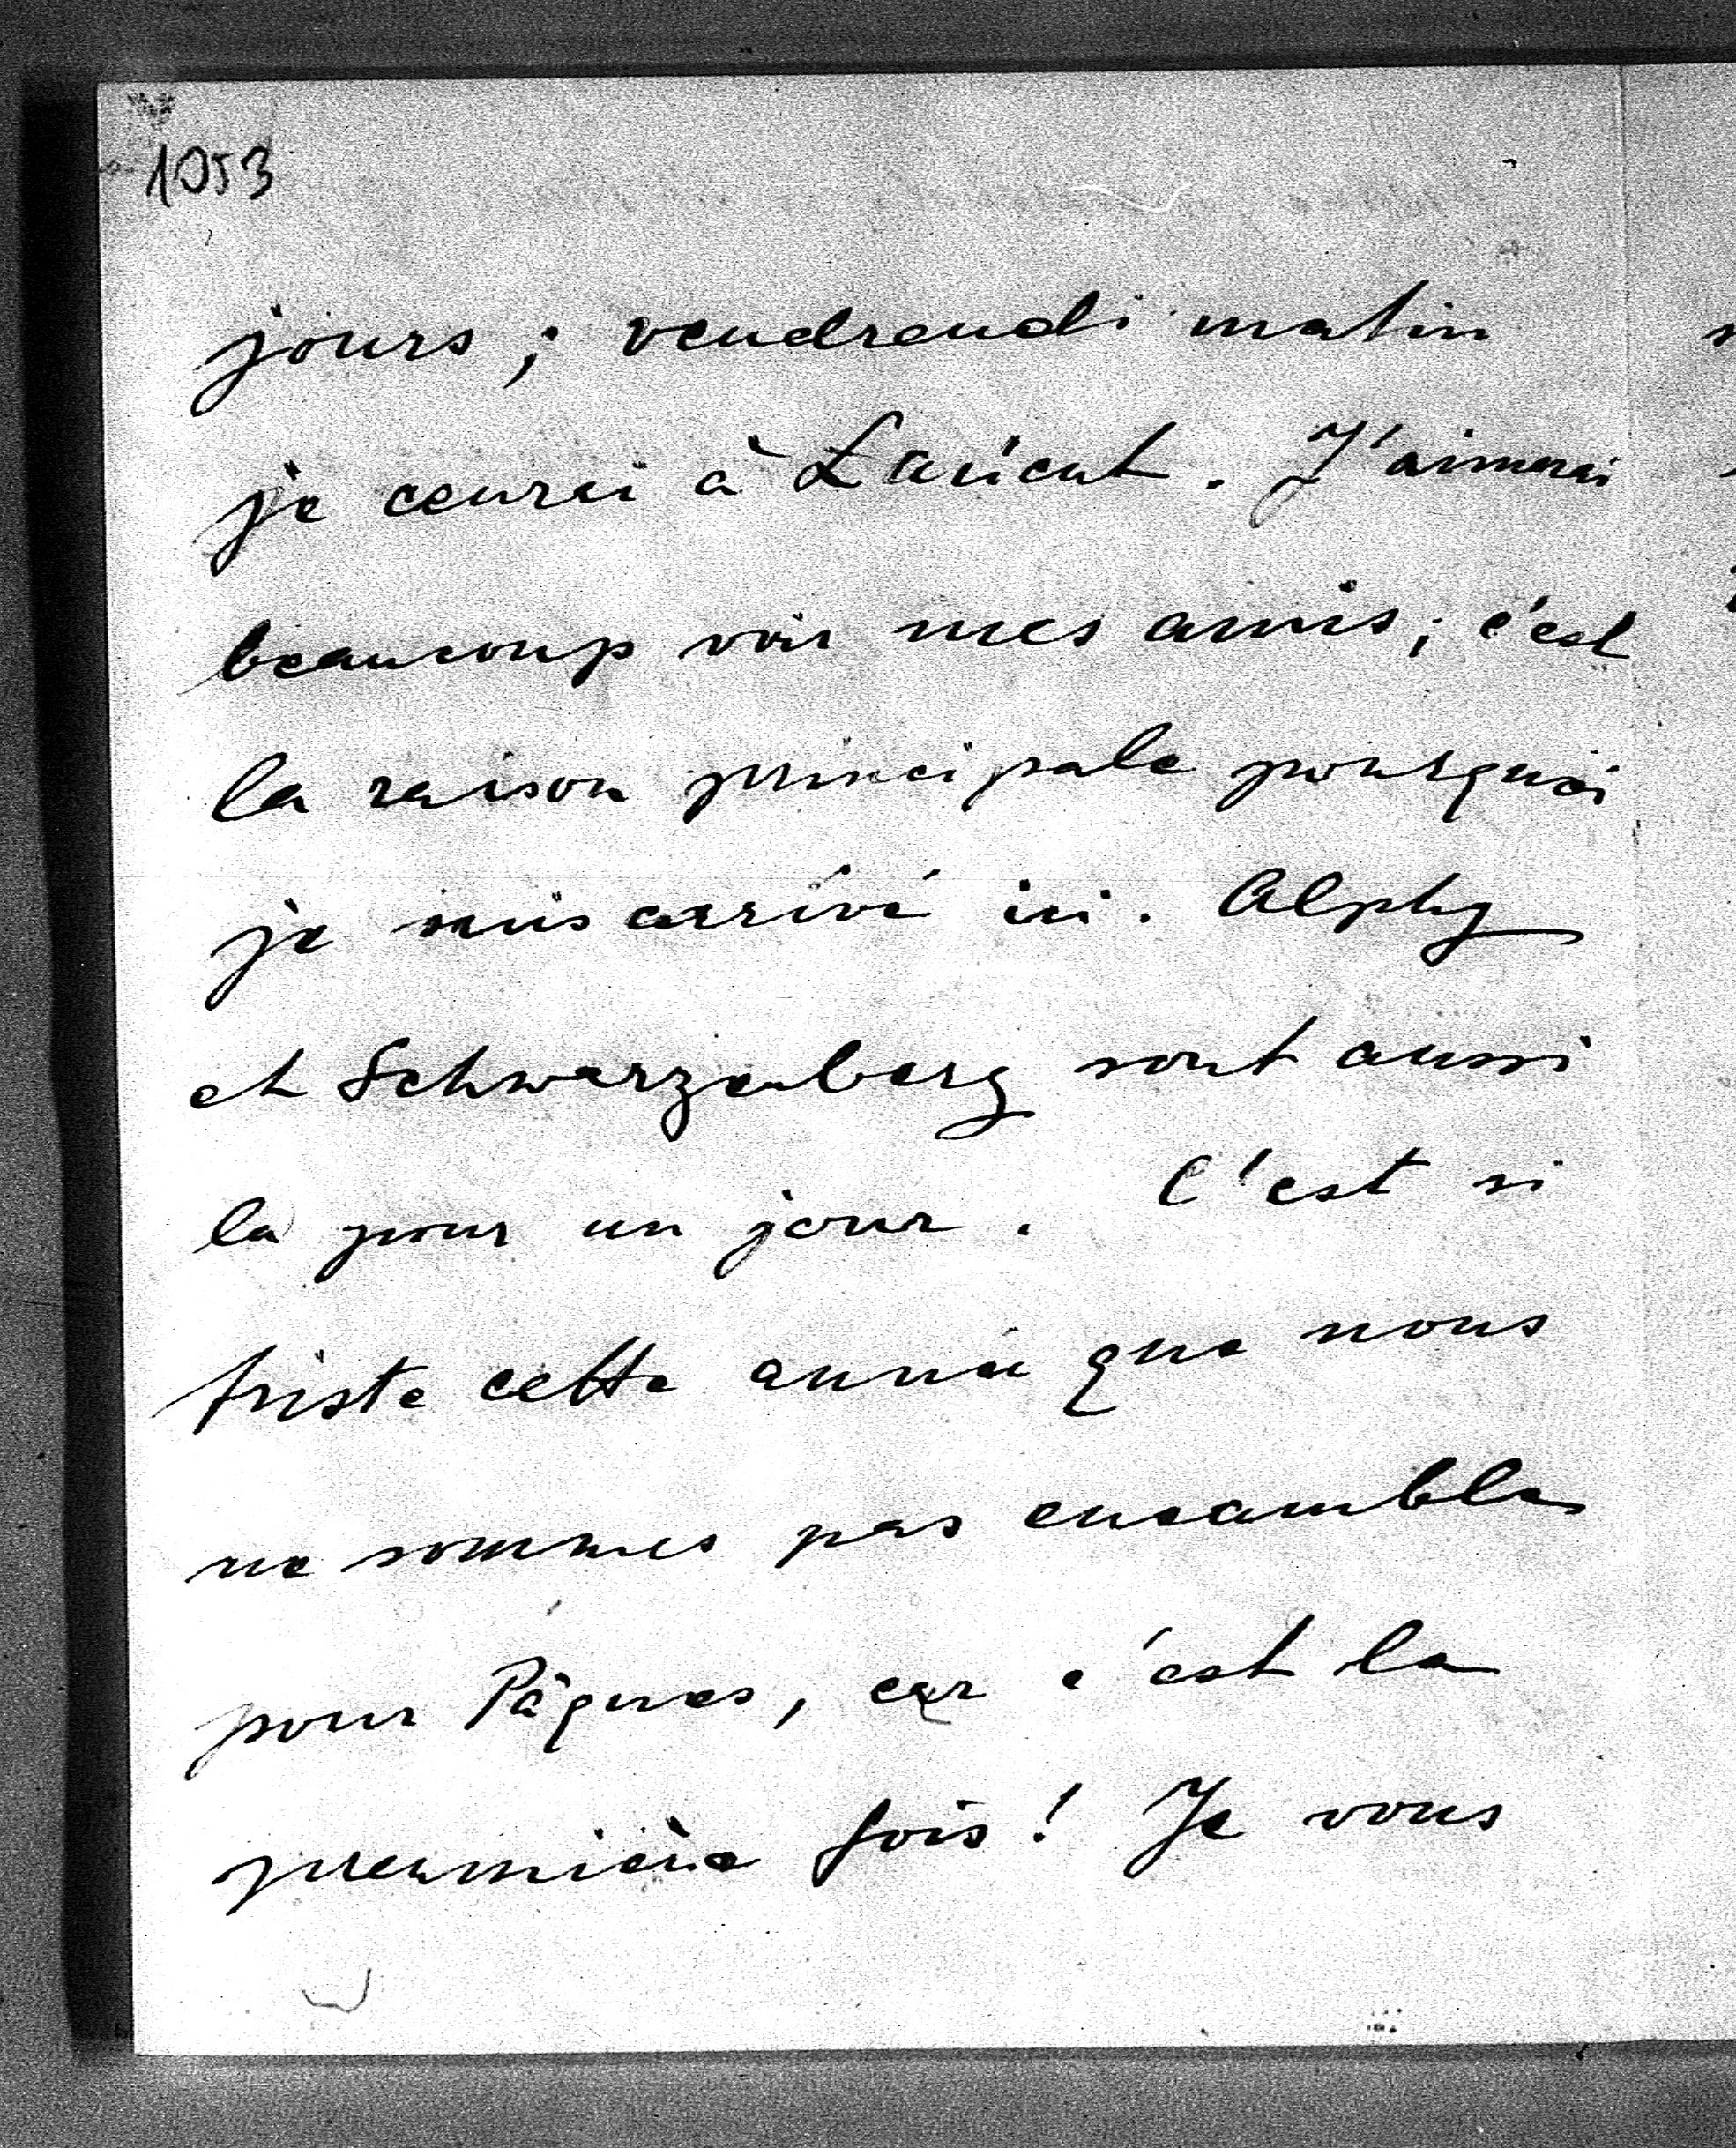 1053
jours ; vendrendi matin
je ceurai à . J'aimerai
beaucoup voir mes amis ; c'est
la raison principale pourquoi
je suis arrivé ici. Alphy
et Schwarzenberg sont aussi
la pour un jour. C'est si
triste cette année que nous
ne sommes pas ensembles
pour Pâques, car c'est la
première fois ! Je vous